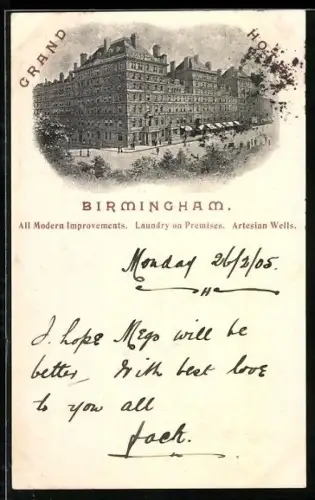 GRAND HOTEL
BIRMINGHAM.
All Modern Improvements. Laundry on Premises. Artesian Wells.
Monday 26/2/05.
H
I hope Megs will be
better. With best love
to you all
Jack.